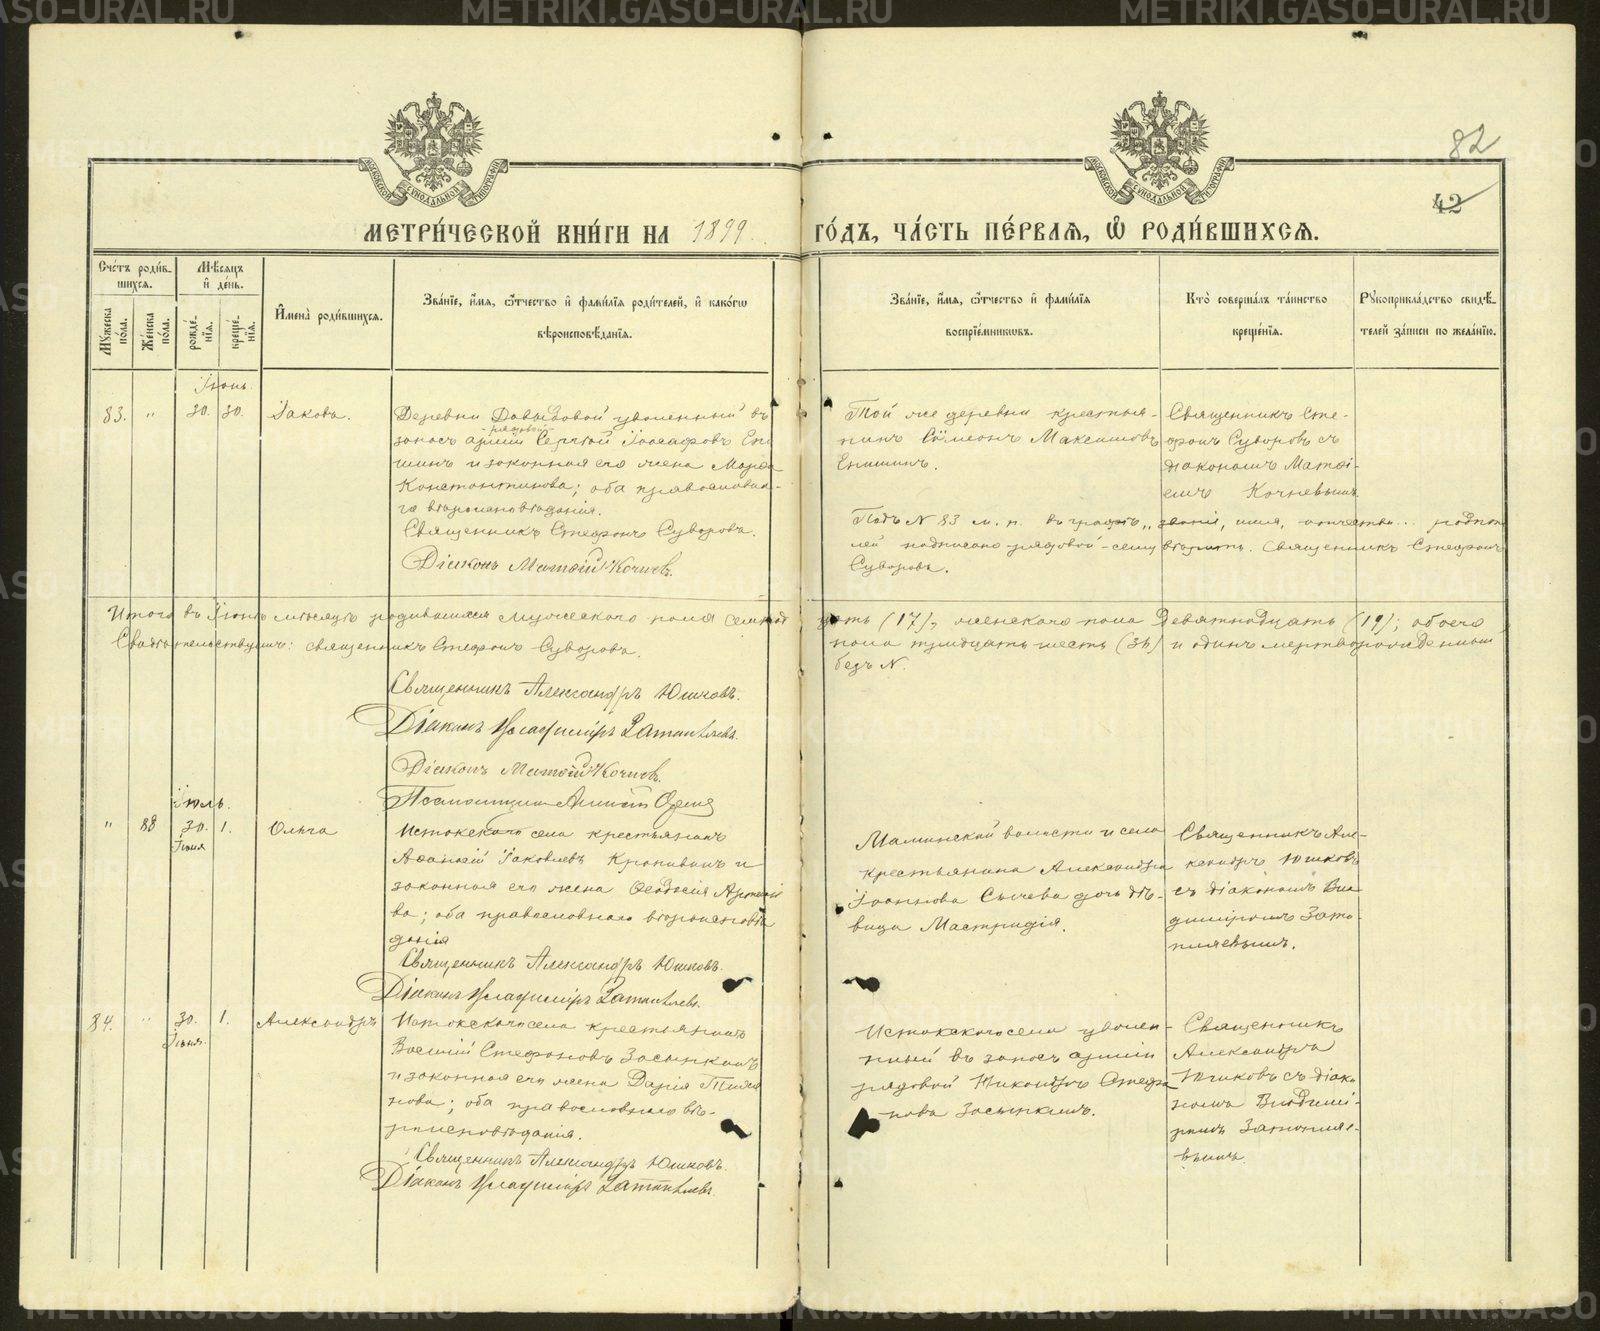 METRIKI.GASO-URAL.RU
82
42
МОСКОВСКОЙ СѴНОДАЛЬНОЙ ТИПОГРАФІИ
МЕТРИ́ЧЕСКОЙ КНИ́ГИ НА 1899 ГО́ДЪ, ЧА́СТЬ ПЕ́РВАЯ, Ѡ РОДИ́ВШИХСЯ.
Сче́тъ роди́вшихся.
Мꙋ́жеска по́ла.
Же́нска по́ла.
Мѣ́сяцъ и҆ де́нь.
рожде́нїя.
креще́нїя.
И҆мена̀ роди́вшихся.
Зва́нїе, и҆́мя, ѻ҆́тчество и҆ фамі́лїя роди́телей, и҆ како́гѡ
вѣроисповѣ́данїя.
Зва́нїе, и҆́мя, ѻ҆́тчество и҆ фамі́лїя
воспрїе́мниковъ.
Кто̀ соверша́лъ та́инство
креще́нїя.
Рꙋкоприкла́дство свидѣ́-
телей за́писи по жела́нїю.
Іюнь.
83. " 30. 30. Іаковъ.
Деревни Давыдовой уволенный въ
запасъ арміи рядовой Сергій Іоасафовъ Еп
шинъ и законная его жена Марѳа
Константинова; оба православна-
го вѣроисповѣданія.
Священникъ Стефанъ Суворовъ.
Діаконъ Матѳій Кочневъ.
Той же деревни крестья-
нинъ Сѵмеонъ Максимовъ
Епишинъ.
Подъ N 83 м. п. въ графѣ „званіе, имя, отчество... родите
лей надписано-рядовой-сему вѣрить. Священникъ Стефанъ
Суворовъ.
Священникъ Сте-
фанъ Суворовъ съ
діакономъ Матѳі-
емъ Кочневымъ
Итого въ Іюнѣ мѣсяцѣ родившихся мужескаго пола семнад
цать (17), женскаго пола девятнадцать (19); обоего
Свидѣтельствуемъ: священникъ Стефанъ Суворовъ.
пола тридцать шесть (36) и одинъ мертворожденный
безъ N.
Священникъ Александръ Юшковъ.
Діаконъ Владиміръ Затопляевъ.
Діаконъ Матѳій Кочневъ.
Псаломщикъ
Іюль.
" 88 30. Іюня 1. Ольга
Истокскаго села крестьянинъ
Аѳанасій Іаковлевъ Крапивинъ и
законная его жена Ѳеодосія
ва; оба православнаго вѣроисповѣ
данія
Священникъ Александръ Юшковъ.
Діаконъ Владиміръ Затопляевъ.
Маминской волости и села
крестьянина Александра
Іоаннова Сычева дочь дѣ-
вица Мастридія.
Священникъ Але-
ксандръ Юшковъ
съ діакономъ Вла
диміромъ Зато-
пляевымъ.
84. " 30. Іюня. 1. Александръ
Истокскаго села крестьянинъ
Василій Стефановъ Засыпкинъ
и законная его жена Дарія
нова; оба православнаго вѣ-
роисповѣданія.
Священникъ Александръ Юшковъ.
Діаконъ Владиміръ Затопляевъ.
Истокскаго села уволен-
ный въ запасъ арміи
рядовой Никандръ Стефа
новъ Засыпкинъ.
Священникъ
Александръ
Юшковъ съ діако
номъ Владимі-
ромъ Затопляе-
вымъ.